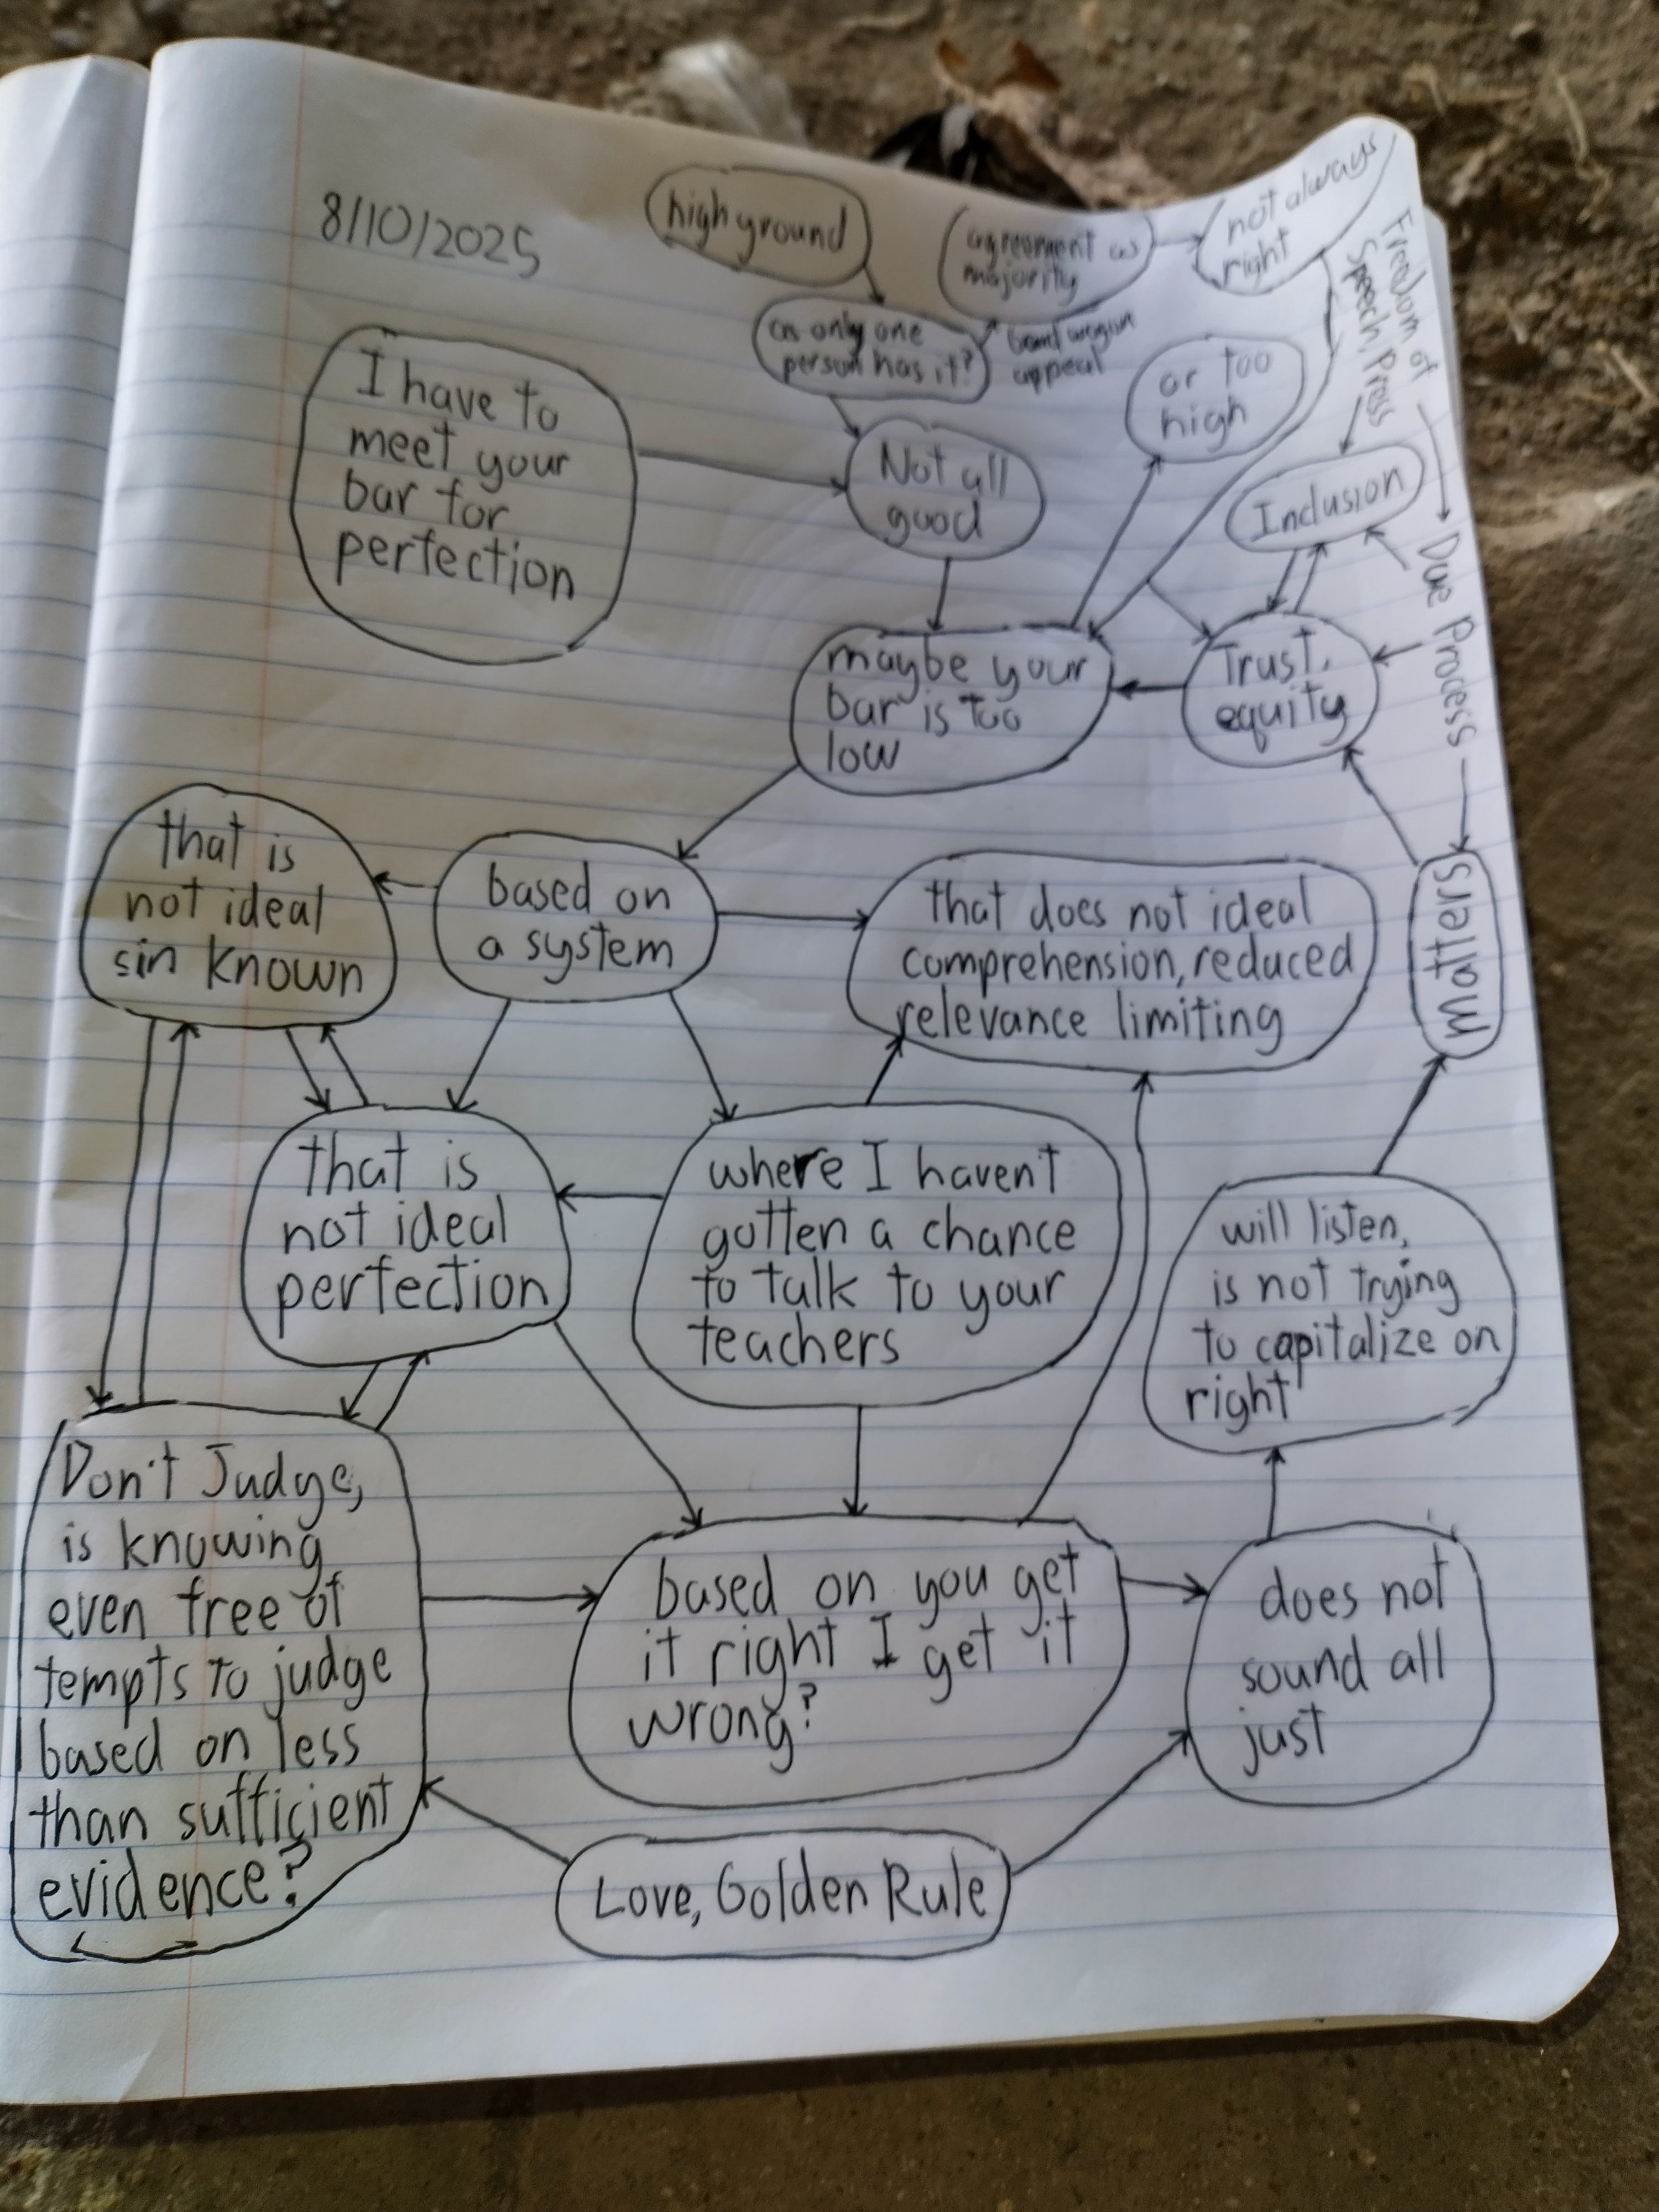 8/10/2025
high ground
agreement as
majority
not always
right
Freedom of
Speech, Press
as only one
person has it?
band wagon
appeal
or too
high
I have to
meet your
bar for
perfection
Not all
good
Inclusion
Due Process
maybe your
bar is too
low
Trust,
equity
that is
not ideal
sin known
based on
a system
that does not ideal
comprehension, reduced
relevance limiting
Matters
that is
not ideal
perfection
where I havent
gotten a chance
to talk to your
teachers
will listen,
is not trying
to capitalize on
right
Don't Judge,
is knowing
even free of
tempts to judge
based on less
than sufficient
evidence?
based on you get
it right I get it
wrong?
does not
sound all
just
Love, Golden Rule